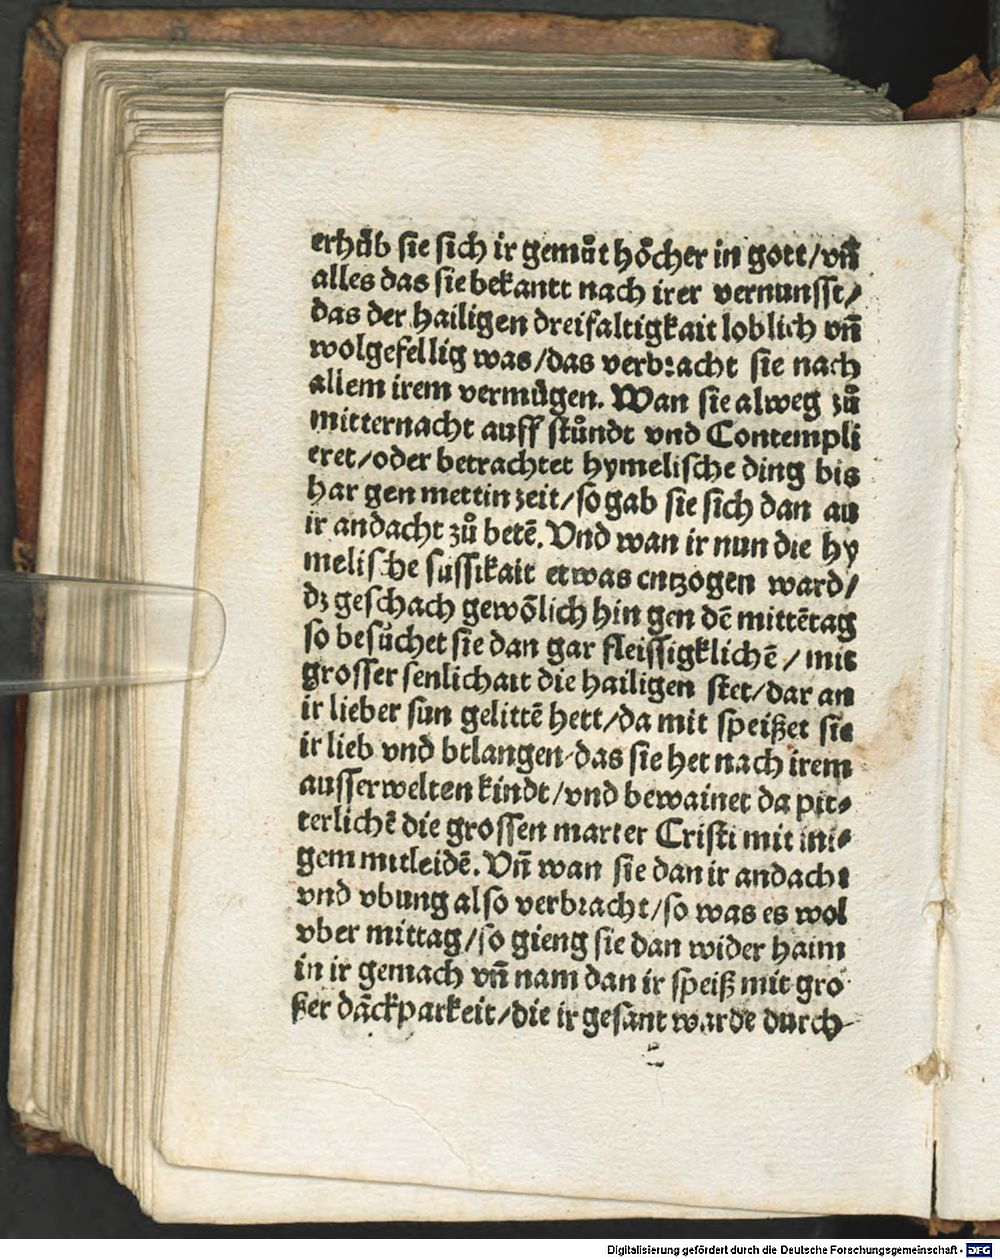 erhůb sie sich ir gemůt hőcher in gott/vñ
alles das sie bekantt nach irer vernunfft/
das der hailigen dreifaltigkait loblich vñ
wolgefellig was/das verbracht sie nach
allem irem vermügen. Wan sie alweg zů
mitternacht auff stůndt vnd Contempli
eret/oder betrachtet hymelische ding bis
har gen mettin zeit/so gab sie sich dan an
ir andacht zů betē. Vnd wan ir nun die hy
melische sussikait etwas entzogen ward/
dz geschach gewōlich hin gen dē mittētag
so besůchet sie dan gar fleissigklichē/mit
grosser senlichait die hailigen stet/dar an
ir lieber sun gelittē hett/da mit speißet sie
ir lieb vnd belangen/das sie het nach irem
ausserwelten kindt/vnd bewainet da pit⸗
terlichē die grossen marter Cristi mit ini⸗
gem mitleidē. Vñ wan sie dan ir andacht
vnd vbung also verbracht/so was es wol
vber mittag/so gieng sie dan wider haim
in ir gemach vñ nam dan ir speiß mit gro
ßer dāckparkeit/die ir gesant warde durch
Digitalisierung gefördert durch die Deutsche Forschungsgemeinschaft - DFG